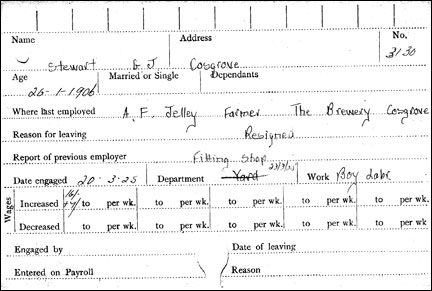 Name Address No.
Stewart G J. Cosgrove 3130
Age Married or Single Dependants
26-1-1906
Where last employed A. F. Jelley Farmer The Brewery Cosgrove
Reason for leaving Resigned
Report of previous employer
Fitting Shop
Date engaged 20-3-25 Department Yard Work Boy labr
Wages
Increased to per wk. to per wk. to per wk. to per wk. to per wk.
Decreased to per wk. to per wk. to per wk. to per wk. to per wk.
Engaged by Date of leaving
Entered on Payroll Reason